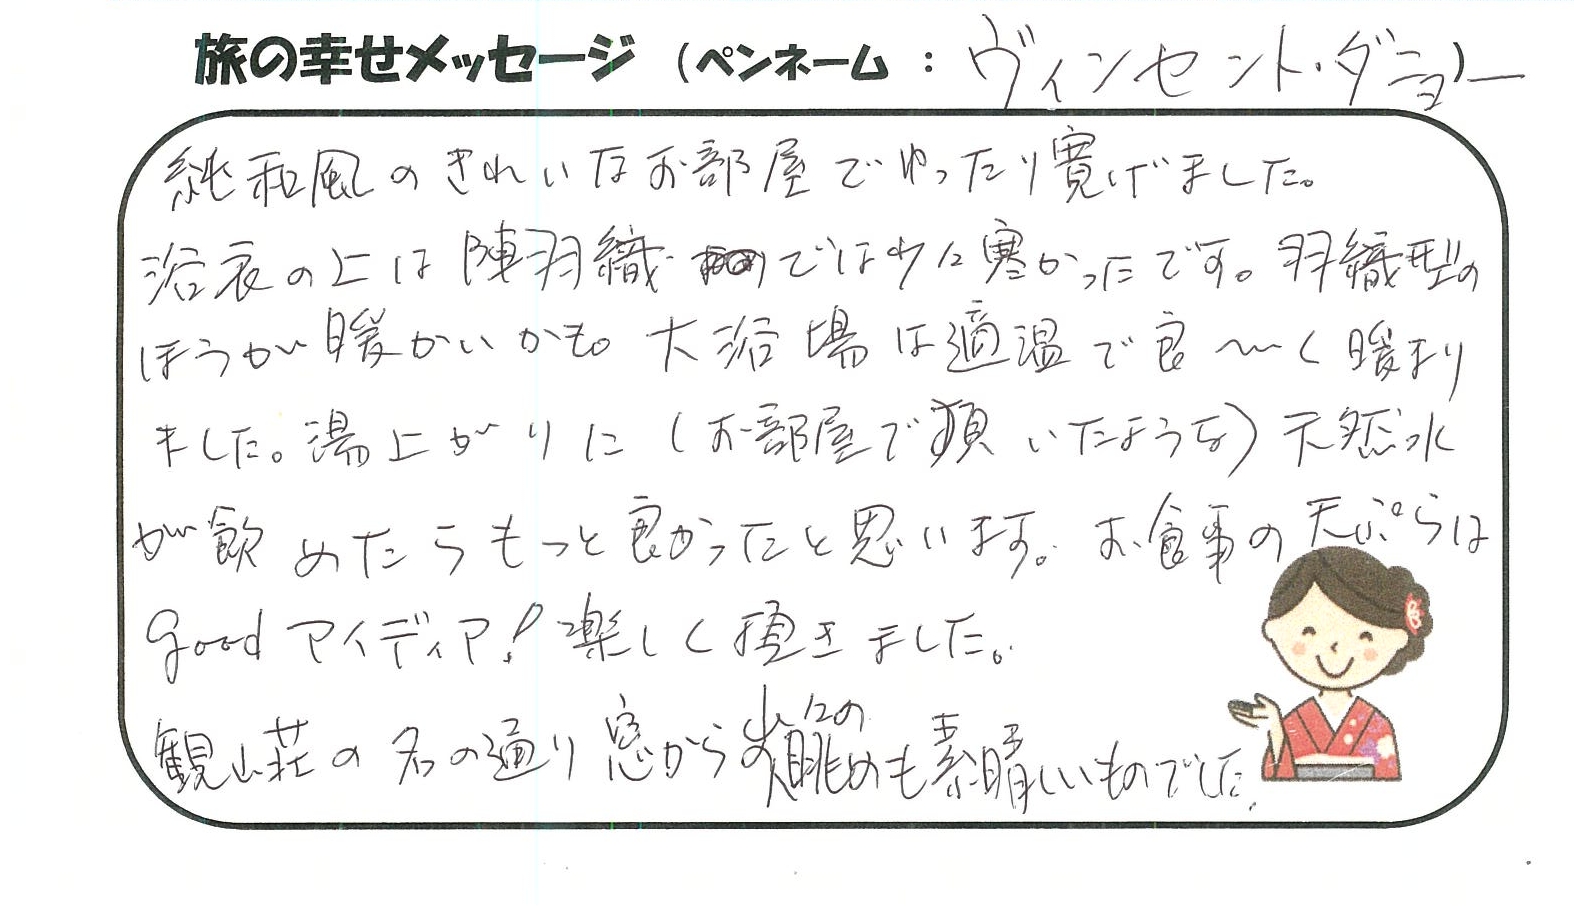 旅の幸せメッセージ (ペンネーム : ヴィンセント・ダニョー)
純和風のきれいなお部屋でゆったり寛げました。
浴衣の上は陣羽織では少々寒かったです。羽織型の
ほうが暖かいかも。大浴場は適温で良〜く暖まり
ました。湯上がりに(お部屋で頂いたような)天然水
が飲めたらもっと良かったと思います。お食事の天ぷらは
goodアイディア!楽しく頂きました。
観山荘の名の通り窓から山々の眺めも素晴しいものでした。